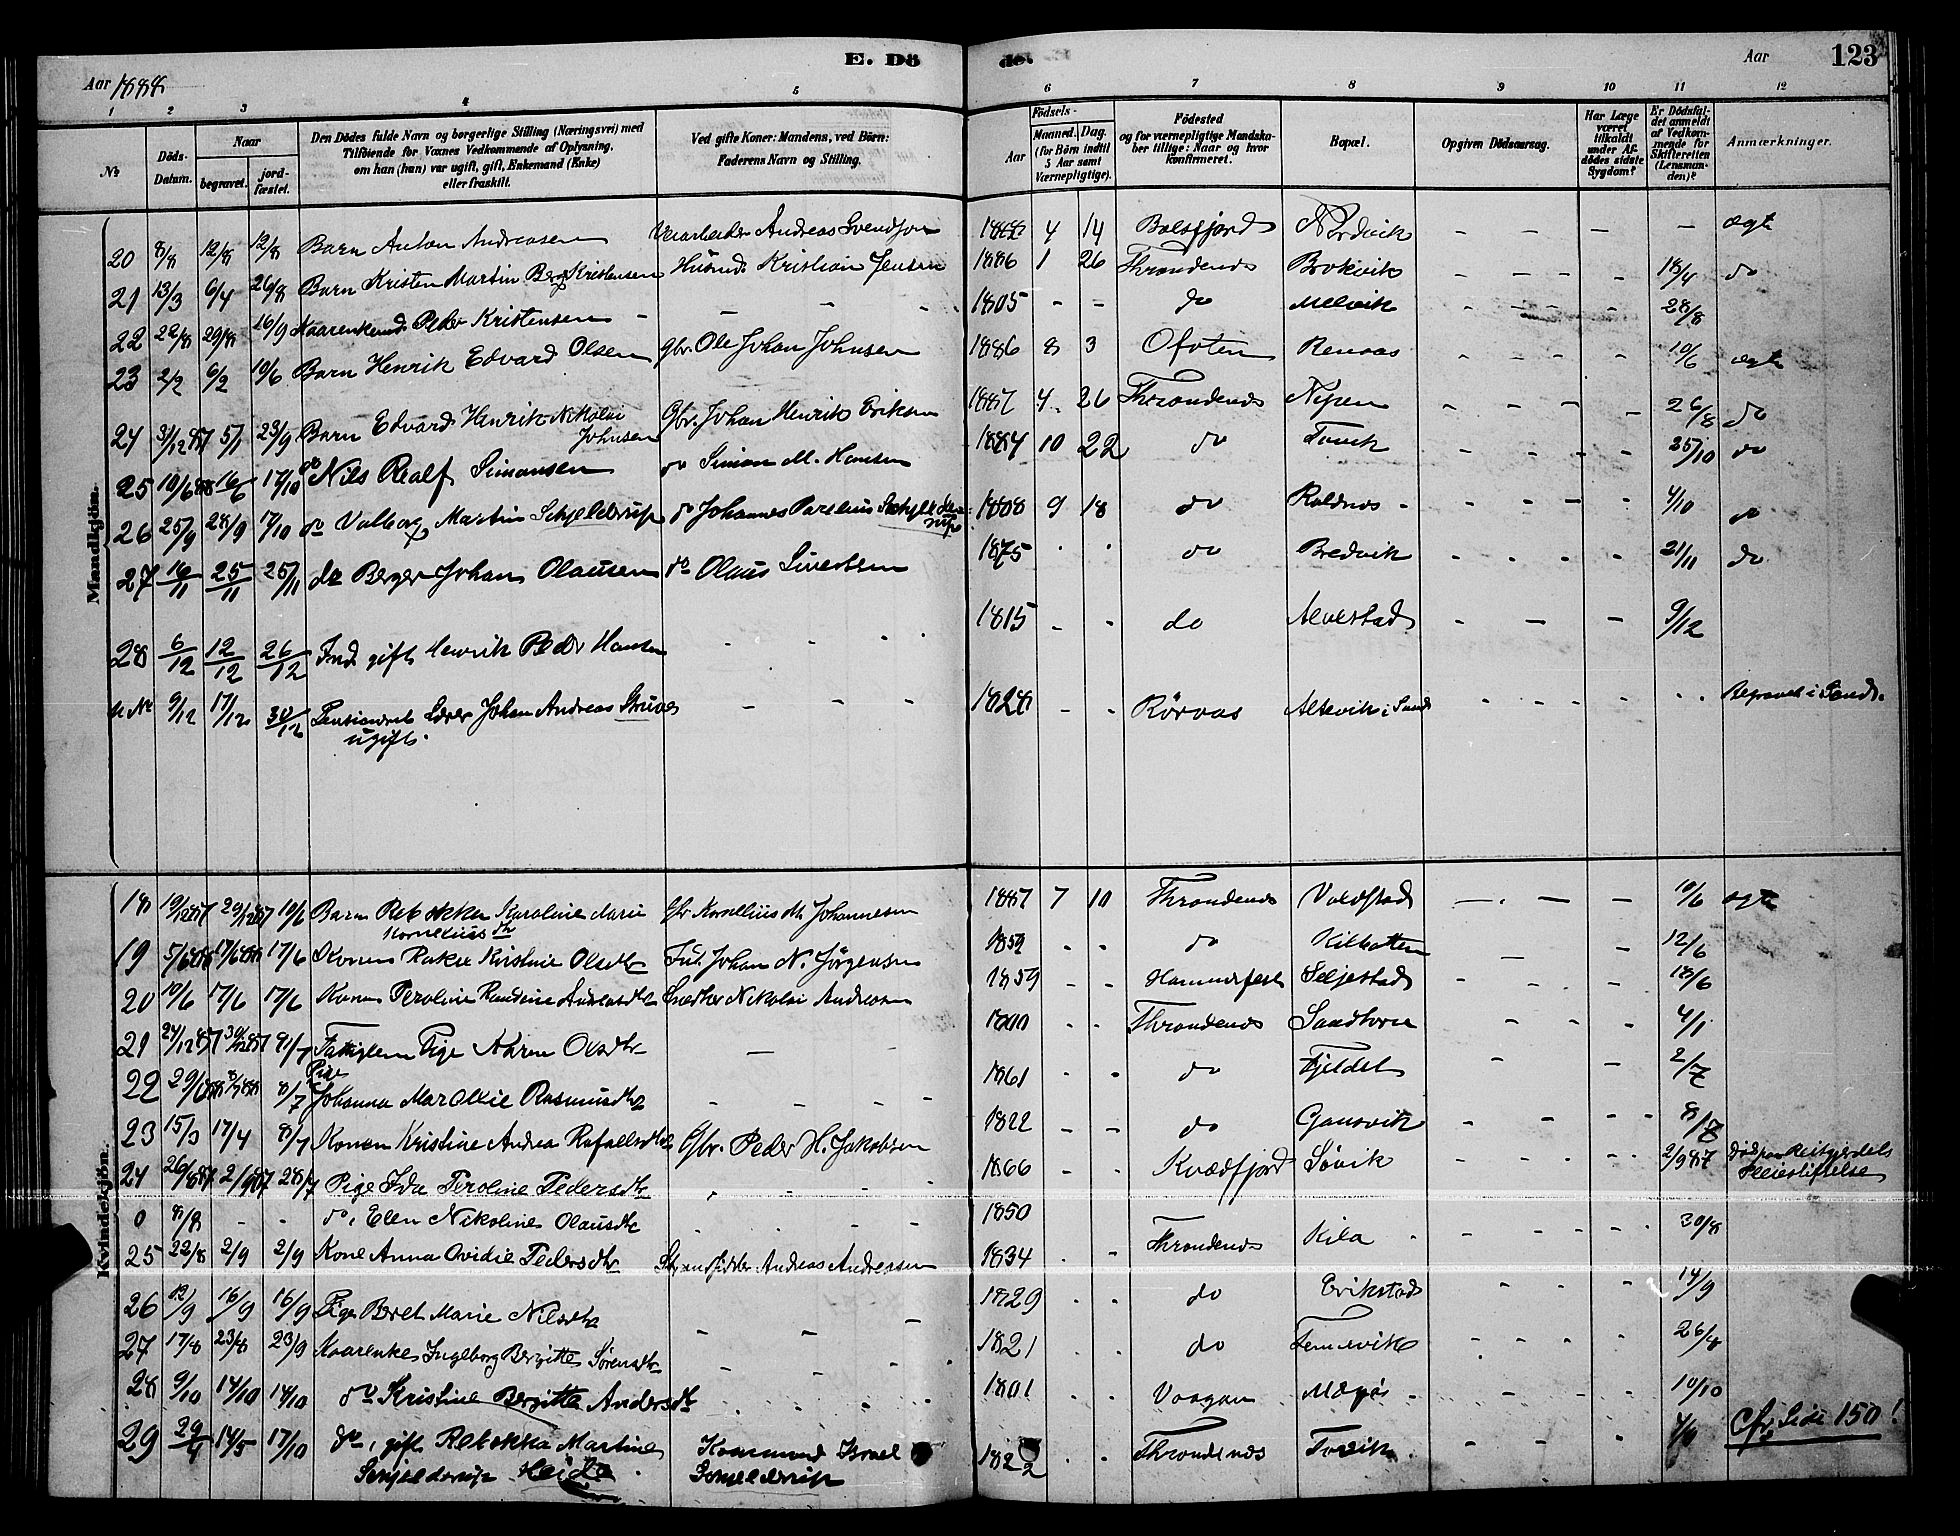 Aar 1888
E. Dö
de.
Aar
123
1 2 3 4 5 6 7 8 9 10 11 12
№
Döds-
Datum.
Naar
begravet.
jord-
fæstet.
Den Dödes fulde Navn og borgerlige Stilling (Næringsvei) med
Tilföiende for Voxnes Vedkommende af Oplysning,
om han (hun) var ugift, gift, Enkemand (Enke)
eller fraskilt.
Ved gifte Koner: Mandens, ved Börn:
Faderens Navn og Stilling.
Födsels-
Aar
Maaned. Dag.
(for Börn indtil
5 Aar samt
Værnepligtige).
Födested
og for værnepligtige Mandska-
ber tillige: Naar og hvor
konfirmeret.
Bopæl.
Opgiven Dödsaarsag.
Har Læge
været
tilkaldt
under Af-
dödes sidste
Sygdom?
Er Dödsfal-
det anmeldt
af Vedkom-
mende for
Skifteretten
(Lensman-
den)?
Anmærkninger.
Mandkjön.
20 8/8 12/8 12/8 Barn Anton Andreasen Andreas Svendsen 1888 4 14 Balsfjord Nordvik - - - - ægte
21 13/3 6/4 26/8 Barn Kristen Martin Berg Kristensen Husmd Kristian Jensen 1886 1 26 Throndenes Brokvik - - - - 18/4 do
22 22/8 29/8 16/9 Kaarenkemd Peder Kristensen - - - 1805 - - do Melvik - - - - 28/8
23 2/2 6/2 10/6 Barn Henrik Edvard Olsen Gbr. Ole Johan Johnsen 1886 8 3 Ofoten Renaas - - - - 10/6 ægte
24 31/12 87 5/1 23/9 Barn Edvard Henrik Nikolai
Johnsen Gbr. Johan Henrik Eriksen 1887 4 26 Throndenes Nipen - - - - 26/8 do
25 10/6 88 16/6 17/10 do Nils Realf Simonsen do Simon M. Hansen 1884 10 22 do - - - - 25/10 do
26 25/9 28/9 17/10 do Valborg Martin Schjelderup do Johannes Parelius Schjelde-
rup 1888 9 18 do - - - - 4/10 do
27 16/11 25/11 25/11 do Berger Johan Olausen do Olaus Sivertsen 1875 - - do Bredvik - - - - 21/11 do
28 6/12 12/12 26/12 Ind. gift Henrik Peder Hansen - - - 1815 - - do Alvestad - - - 9/12
u № 9/12 17/12 30/12 Pensioneret Lærer Johan Andreas Struve
ugift. - - - 1828 - - Röraas Altevik i Sand - - - - - - Begravet i Sand.
Kvindekjön.
18 19/12 87 29/12 87 10/6 Barn Rebekka Karoline Marie
Korneliusdtr Gbr Kornelius M Johannesen 1887 7 10 Throndenes Voldstad - - - - 10/6 ægte
19 5/6 88 17/6 88 17/6 Konen Kristine Olsdtr Ind. Johan N. Jörgensen 1859 - - do Kilbotten - - 12/6
20 10/6 17/6 17/6 Konen Peroline Andreasdtr Nikolai Andreasen 1859 - - Hammerfest Seljestad - - - - 18/6
21 24/12 87 30/12 87 Fattiglem Pige Olsdtr - 1800 - - Throndenes Sandtorv - - - 4/1
22 8/7 Pige
Johanna Rasmusdtr - - - - 1861 - - do Fjeldet - - 2/7
23 15/3 17/4 8/7 Konen Kristine Andrea Rafaelsdtr Gbr. Peder H. Jakobsen 1822 - - do Gausvik - - - - 8/7
24 26/8 87 2/9 87 28/7 Pige Ida Peroline Pedersdtr - - - 1866 - - Kvædfjord Sövik - - - - 2/9 87 Död paa Reitgjerdets
Pleiestiftelse
0 8/8 - - do, Elen Nikoline Olausdtr - - - 1850
25 22/8 2/9 2/9 Kone Anna Ovidie Pedersdtr Strandsidder Andreas Andressen 1834 - - Throndenes Kila - - - - 30/8
26 12/9 16/9 16/9 Pige Beret Marie Nilsdtr - - - 1829 - - do Erikstad - - - 14/9
27 17/8 23/8 23/9 Kaarenke Ingeborg Bergitte Sörensdtr - - - 1821 - - do - - - - 26/8
28 9/10 14/10 14/10 do Kristine Bergitte Andersdtr - - - - 1801 - - Vaagan - - - - 10/10
29 29/4 14/5 17/10 do, gift Rebekka Martine
Schjelderup Heide Kaarmand Israel
Schjelderup 1822 Throndenes - - - Cfr. Side 150!